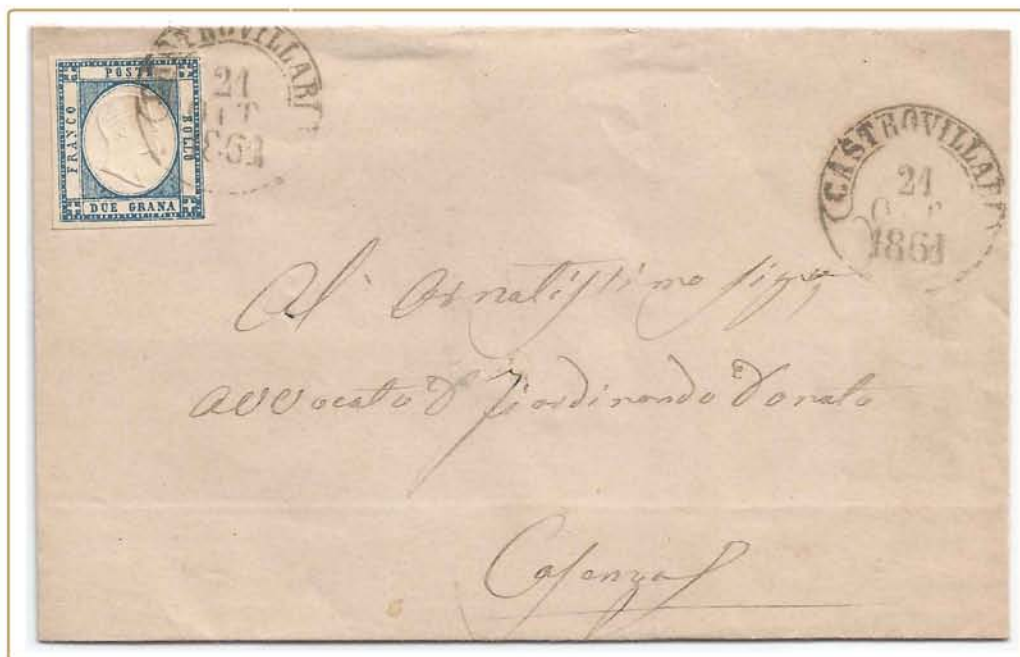 POSTE
FRANCO
BOLLO
DUE GRANA
TROVILLARI
21
861
CASTROVILLARI
21
1861
Al Ornatissimo Sigre
avvocato D Ferdinando Donato
Cosenza